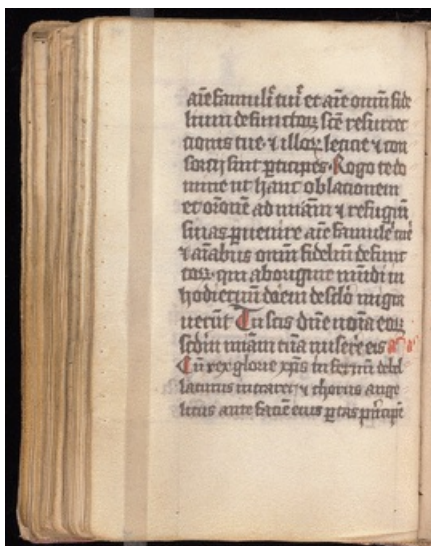 aīe famuli tui et aīe om̄iū fide
lium defunctoꝝ sc̄e resurrec
tionis tue ⁊ illoꝝ leticie ⁊ con
sorcii sint ꝑticipes Rogo te do
mine ut hanc oblacionem
et or̄onem ad mīam ⁊ refugiū
sinas ꝑuenire aīe famule tue
⁊ aīabus om̄iū fidelium defunc
toꝝ qui ab origine mūdi in
hodiernū diem de sc̄lo migra
uerūt Tu scis dn̄e noīa eoꝝ
scdm̄ mīam tuā miserē eis
Cū rex glorie xp̄s infernū debel
laturus intraret ⁊ chorus ange
licus ante faciē eius portas pͥncipū